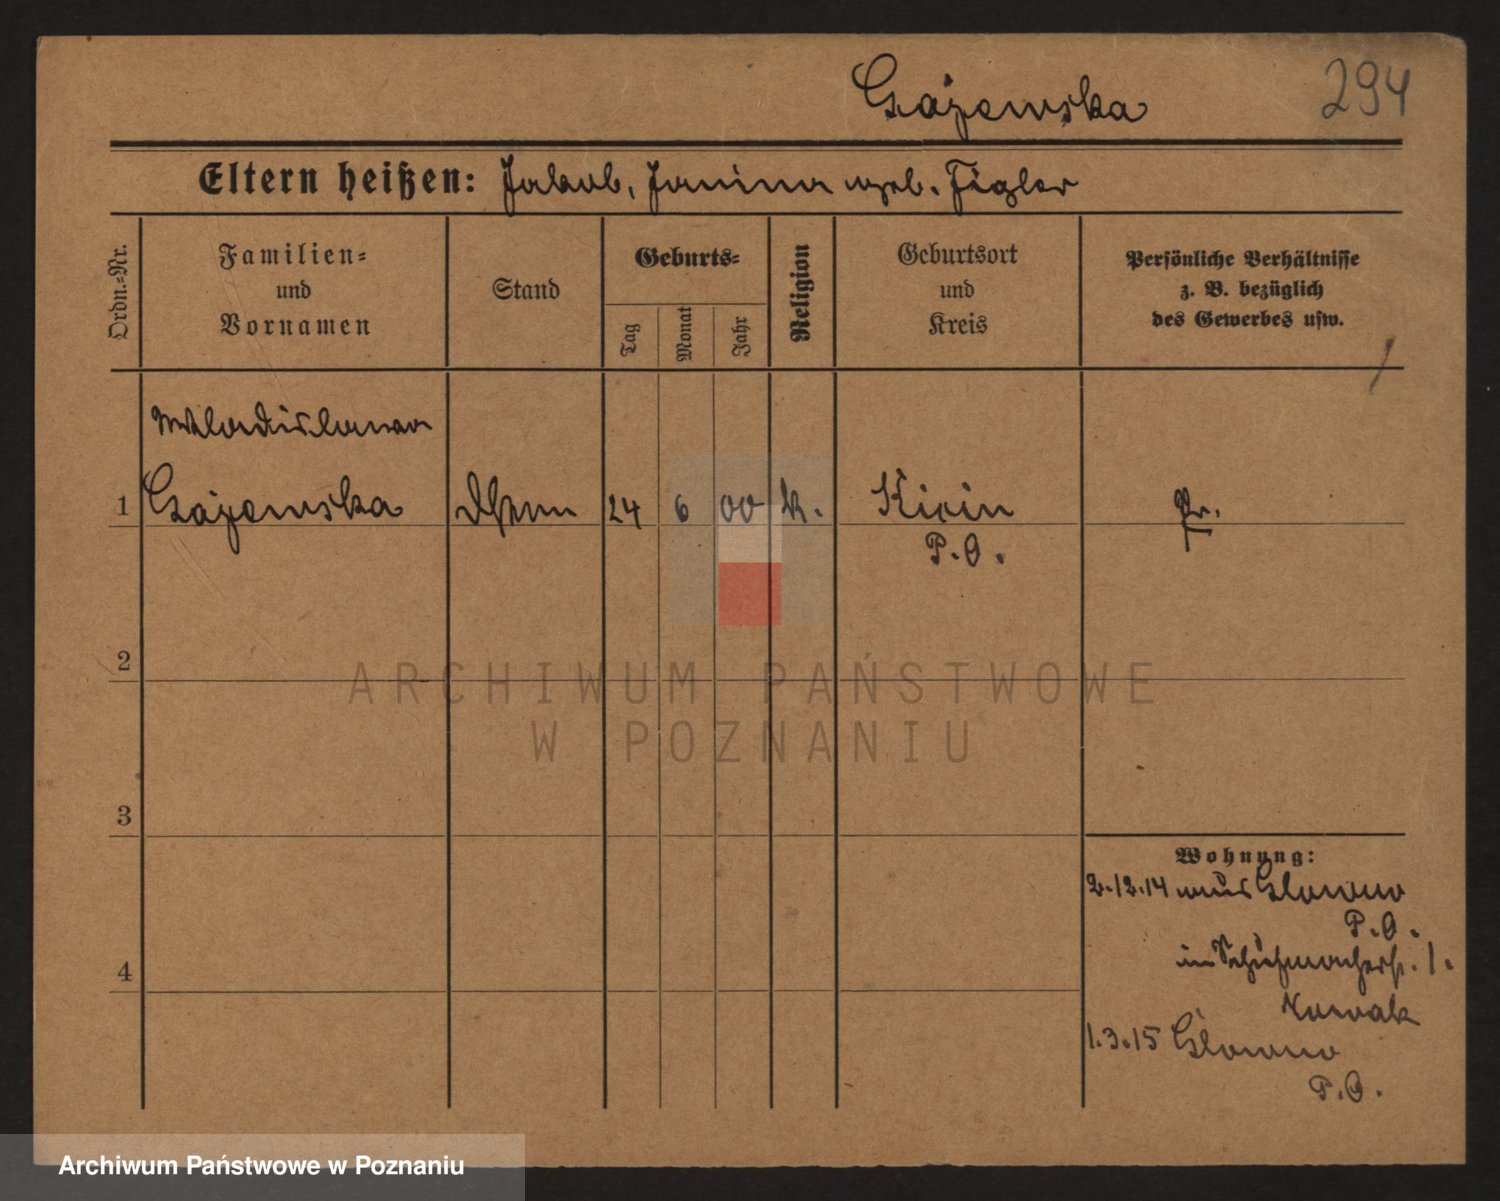 Gajewska
294
Eltern heißen: Jakob, Janina geb. Figler
Ordn.-Nr.
Familien-
und
Vornamen
Stand
Geburts-
Tag
Monat
Jahr
Religion
Geburtsort
und
Kreis
Persönliche Verhältnisse
z. B. bezüglich
des Gewerbes usw.
Wladislawa
1 Gajewska 24 6 00 k. Kicin Pr.
P.O.
2
ARCHIWUM PAŃSTWOWE
W POZNANIU
3
Wohnung:
2.12.14 aus Glowno
P.O.
in Schuhmacherstr. 1.
Nowak
1.3.15 Glowno
P.O.
4
Archiwum Państwowe w Poznaniu